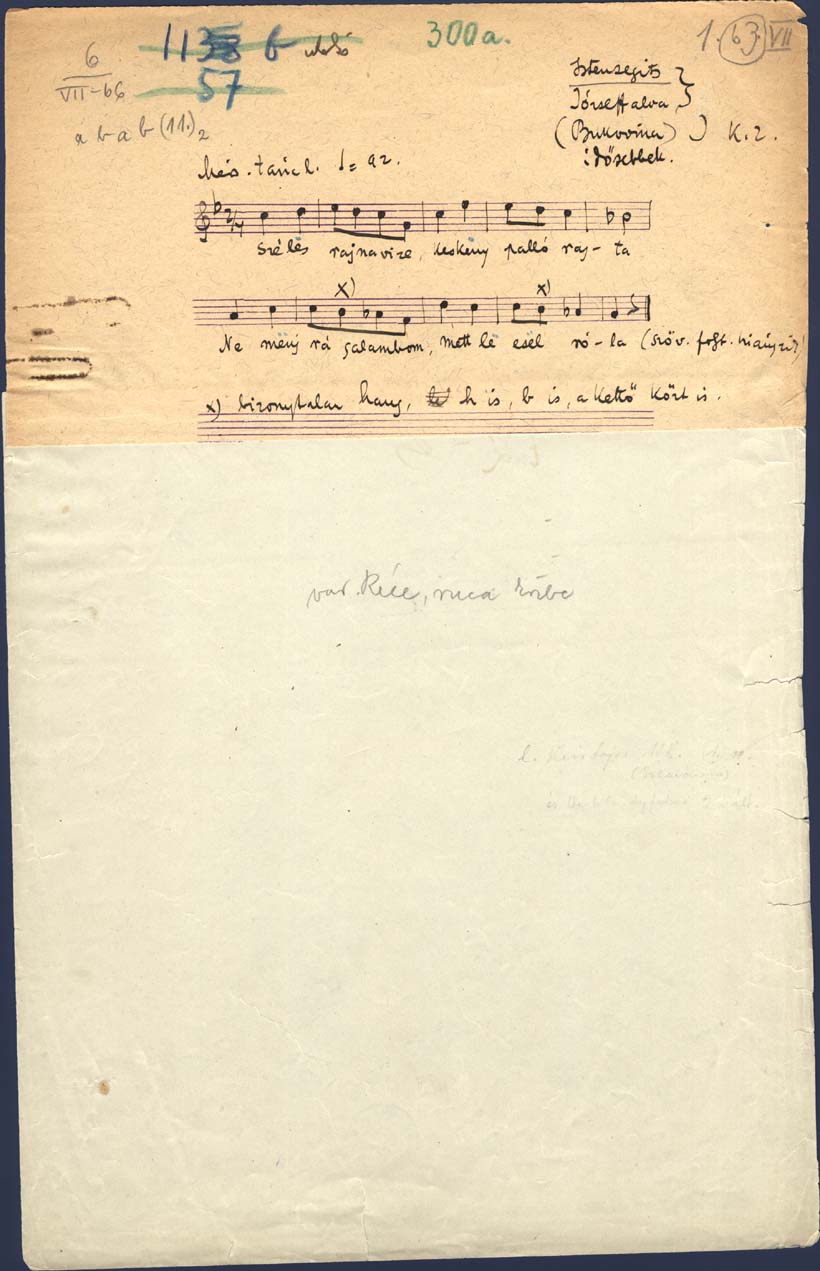 6
VII-66
113 b utolsó
57
300a.
1. 63. VII
a b a b (11.)2
Istensegits
Józseffalva
(Bukovina) K. Z.
idősebbek.
Més. táncl. = 92.
2/4
Szélës rajnavize, keskëny palló raj-ta
x) x)
Ne mënj rá galambom, mett lë esël ró-la (szöv. folyt. hiányzik)
x) bizonytalan hang, h is, b is, a kettő közt is.
var. Réce, ruca